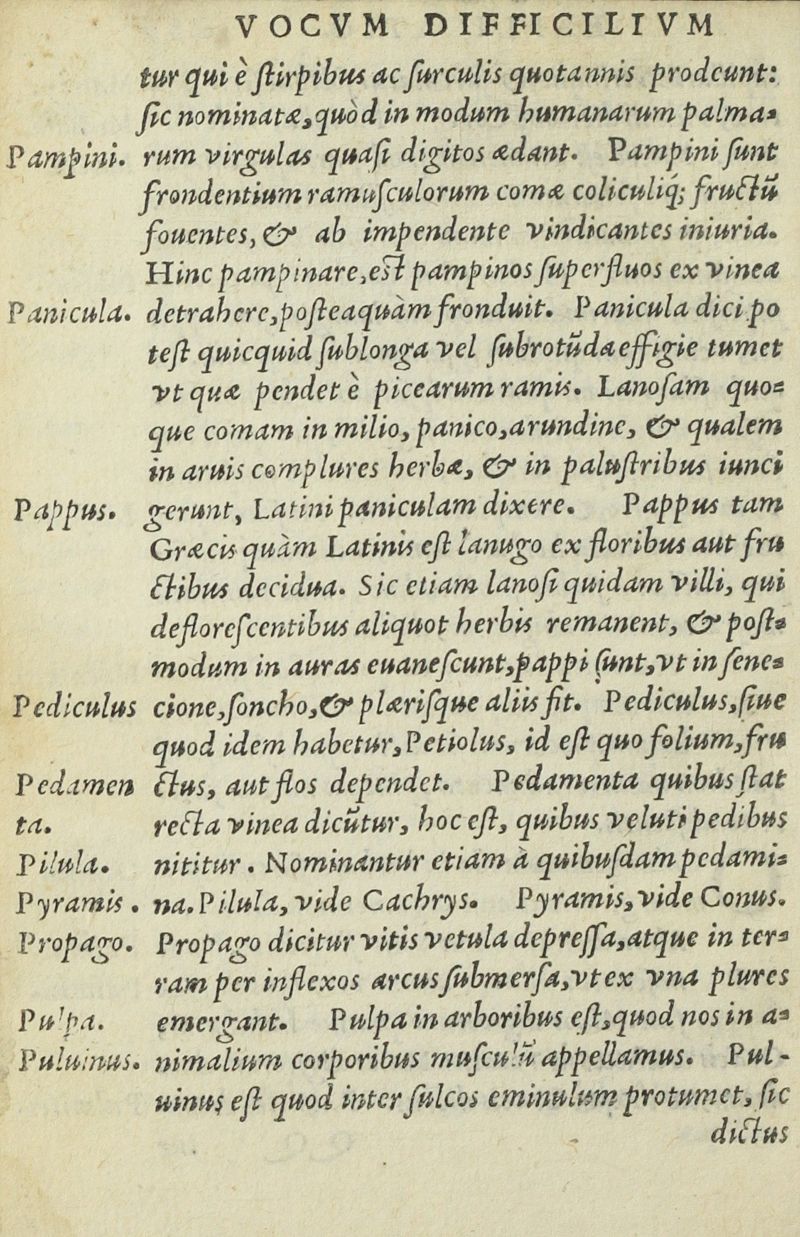 VOCVM DIFFICILIVM
tur qui è ſtirpibus ac ſurculis quotannis prodeunt:
ſic nominatæ, quòd in modum humanarum palma-
Pampini. rum virgulas quaſi digitos ædant. Pampini ſunt
frondentium ramuſculorum comæ coliculiq́; fructū
fouentes, & ab impendente vindicantes iniuria.
Hinc pampinare, eſt pampinos ſuperfluos ex vinea
Panicula. detrahere, poſteaquàm fronduit. Panicula dici po
teſt quicquid ſublonga vel ſubrotūda effigie tumet
vt quæ pendet è picearum ramis. Lanoſam quo-
que comam in milio, panico, arundine, & qualem
in aruis complures herbæ, & in paluſtribus iunci
Pappus. gerunt, Latini paniculam dixere. Pappus tam
Græcis quàm Latinis eſt lanugo ex floribus aut fru
ctibus decidua. Sic etiam lanoſi quidam villi, qui
defloreſcentibus aliquot herbis remanent, & poſt-
modum in auras euaneſcunt, pappi ſunt, vt in ſene-
Pediculus cione, ſoncho, & plæriſque aliis fit. Pediculus, ſiue
quod idem habetur, Petiolus, id eſt quo folium, fru
Pedamen ctus, aut flos dependet. Pedamenta quibus ſtat
ta. recta vinea dicūtur, hoc eſt, quibus veluti pedibus
Pilula. nititur. Nominantur etiam à quibuſdam pedami-
Pyramis. na. Pilula, vide Cachrys. Pyramis, vide Conus.
Propago. Propago dicitur vitis vetula depreſſa, atque in ter-
ram per inflexos arcus ſubmerſa, vt ex vna plures
Pulpa. emergant. Pulpa in arboribus eſt, quod nos in a-
Puluinus. nimalium corporibus muſculū appellamus. Pul-
uinus eſt quod inter ſulcos eminulum protumet, ſic
dictus